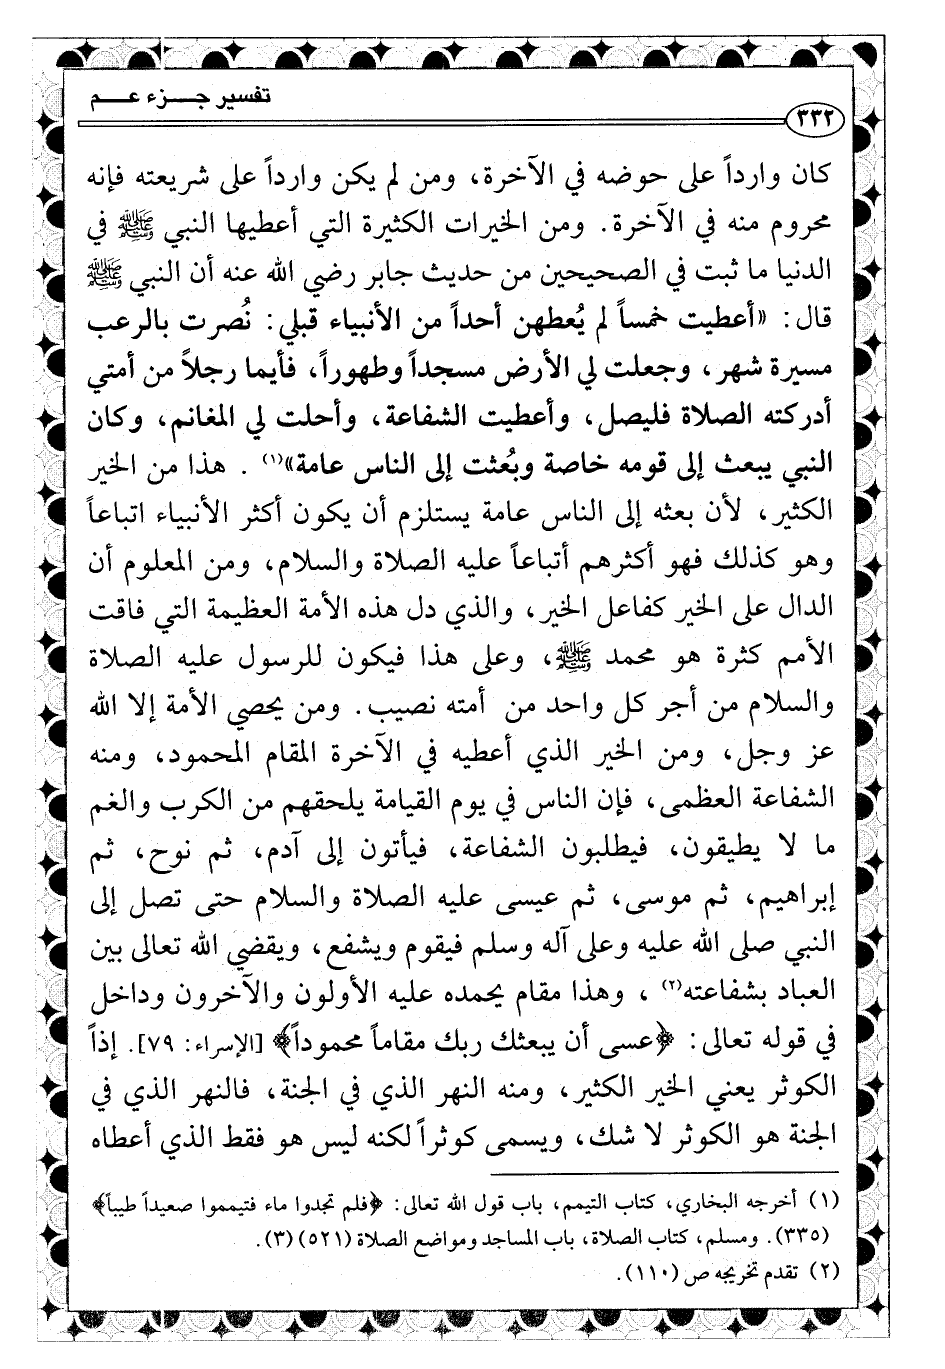 تفسير جـــزء عـــم
٣٣٢
كان وارداً على حوضه في الآخرة، ومن لم يكن وارداً على شريعته فإنه
محروم منه في الآخرة. ومن الخيرات الكثيرة التي أعطيها النبي ﷺ في
الدنيا ما ثبت في الصحيحين من حديث جابر رضي الله عنه أن النبي ﷺ
قال: «أعطيت خمساً لم يُعطهن أحداً من الأنبياء قبلي: نُصرت بالرعب
مسيرة شهر، وجعلت لي الأرض مسجداً وطهوراً، فأيما رجلاً من أمتي
أدركته الصلاة فليصل، وأعطيت الشفاعة، وأحلت لي المغانم، وكان
النبي يبعث إلى قومه خاصة وبُعثت إلى الناس عامة»(١). هذا من الخير
الكثير، لأن بعثه إلى الناس عامة يستلزم أن يكون أكثر الأنبياء اتباعاً
وهو كذلك فهو أكثرهم أتباعاً عليه الصلاة والسلام، ومن المعلوم أن
الدال على الخير كفاعل الخير، والذي دل هذه الأمة العظيمة التي فاقت
الأمم كثرة هو محمد ﷺ، وعلى هذا فيكون للرسول عليه الصلاة
والسلام من أجر كل واحد من أمته نصيب. ومن يحصي الأمة إلا الله
عز وجل، ومن الخير الذي أعطيه في الآخرة المقام المحمود، ومنه
الشفاعة العظمى، فإن الناس في يوم القيامة يلحقهم من الكرب والغم
ما لا يطيقون، فيطلبون الشفاعة، فيأتون إلى آدم، ثم نوح، ثم
إبراهيم، ثم موسى، ثم عيسى عليه الصلاة والسلام حتى تصل إلى
النبي صلى الله عليه وعلى آله وسلم فيقوم ويشفع، ويقضي الله تعالى بين
العباد بشفاعته(٢)، وهذا مقام يحمده عليه الأولون والآخرون وداخل
في قوله تعالى: ﴿عسى أن يبعثك ربك مقاماً محموداً﴾ [الإسراء: ٧٩]. إذاً
الكوثر يعني الخير الكثير، ومنه النهر الذي في الجنة، فالنهر الذي في
الجنة هو الكوثر لا شك، ويسمى كوثراً لكنه ليس هو فقط الذي أعطاه
(١) أخرجه البخاري، كتاب التيمم، باب قول الله تعالى: ﴿فلم تجدوا ماء فتيمموا صعيداً طيباً﴾
(٣٣٥). ومسلم، كتاب الصلاة، باب المساجد ومواضع الصلاة (٥٢١) (٣).
(٢) تقدم تخريجه ص (١١٠).